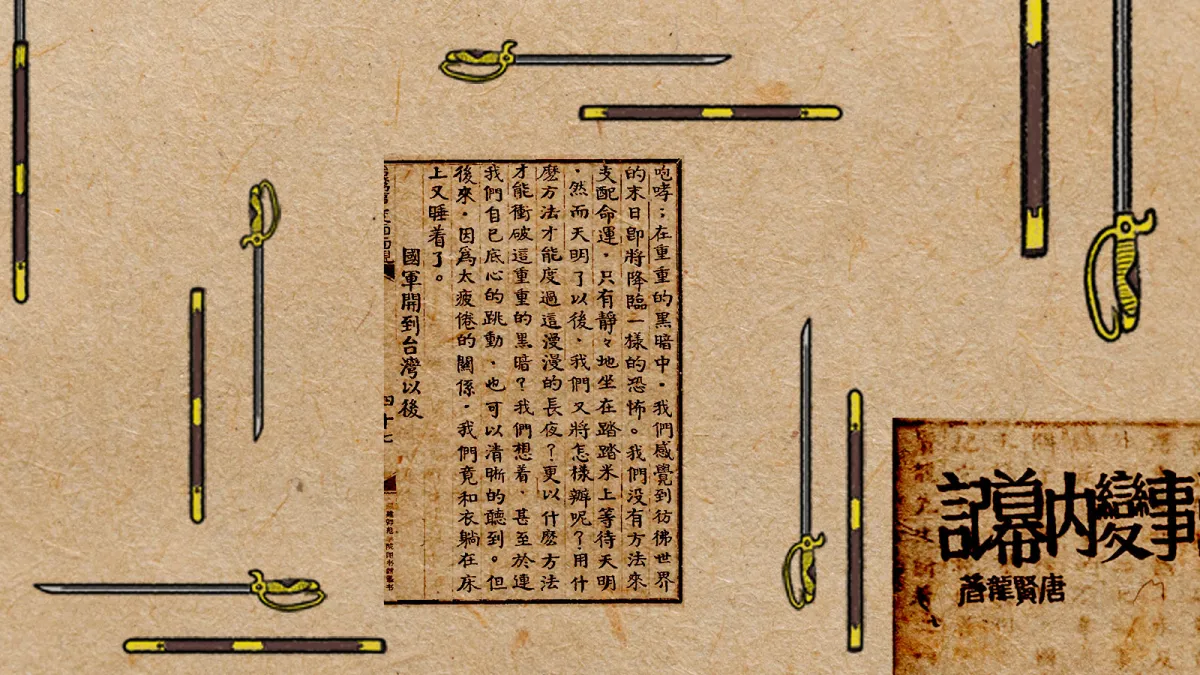 咆哮；在重重的黑暗中。我們感覺到彷彿世界
的末日卽將降臨一樣的恐怖。我們没有方法來
支配命運。只有靜々地坐在踏踏米上等待天明
。然而天明了以後、我們又將怎樣辦呢？用什
麽方法才能度過這漫漫的長夜？更以什麽方法
才能衝破這重重的黑暗？我們想着、甚至於連
我們自已底心的跳動、也可以清晰的聽到。但
後來。因爲太疲倦的關係。我們竟和衣躺在床
上又睡着了。
國軍開到台灣以後
四十七
事變内幕記
唐賢龍著